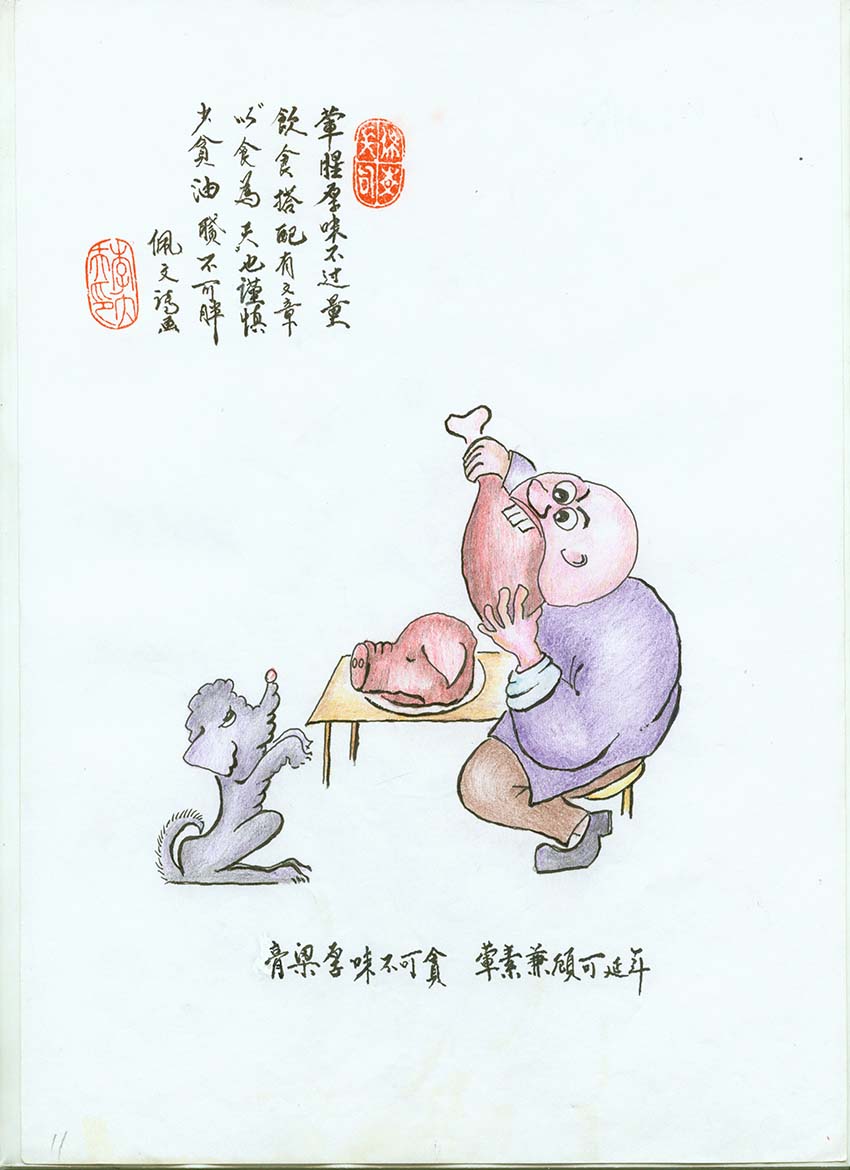 葷腥厚味不过量
飲食搭配有文章
以食為天也謹慎
少貪油膩不可胖
佩文诗画
膏梁厚味不可貪 葷素兼顧可延年
11